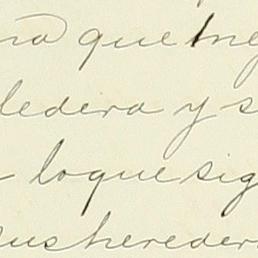 que me
ledera y s
lo que sig
sus hereder